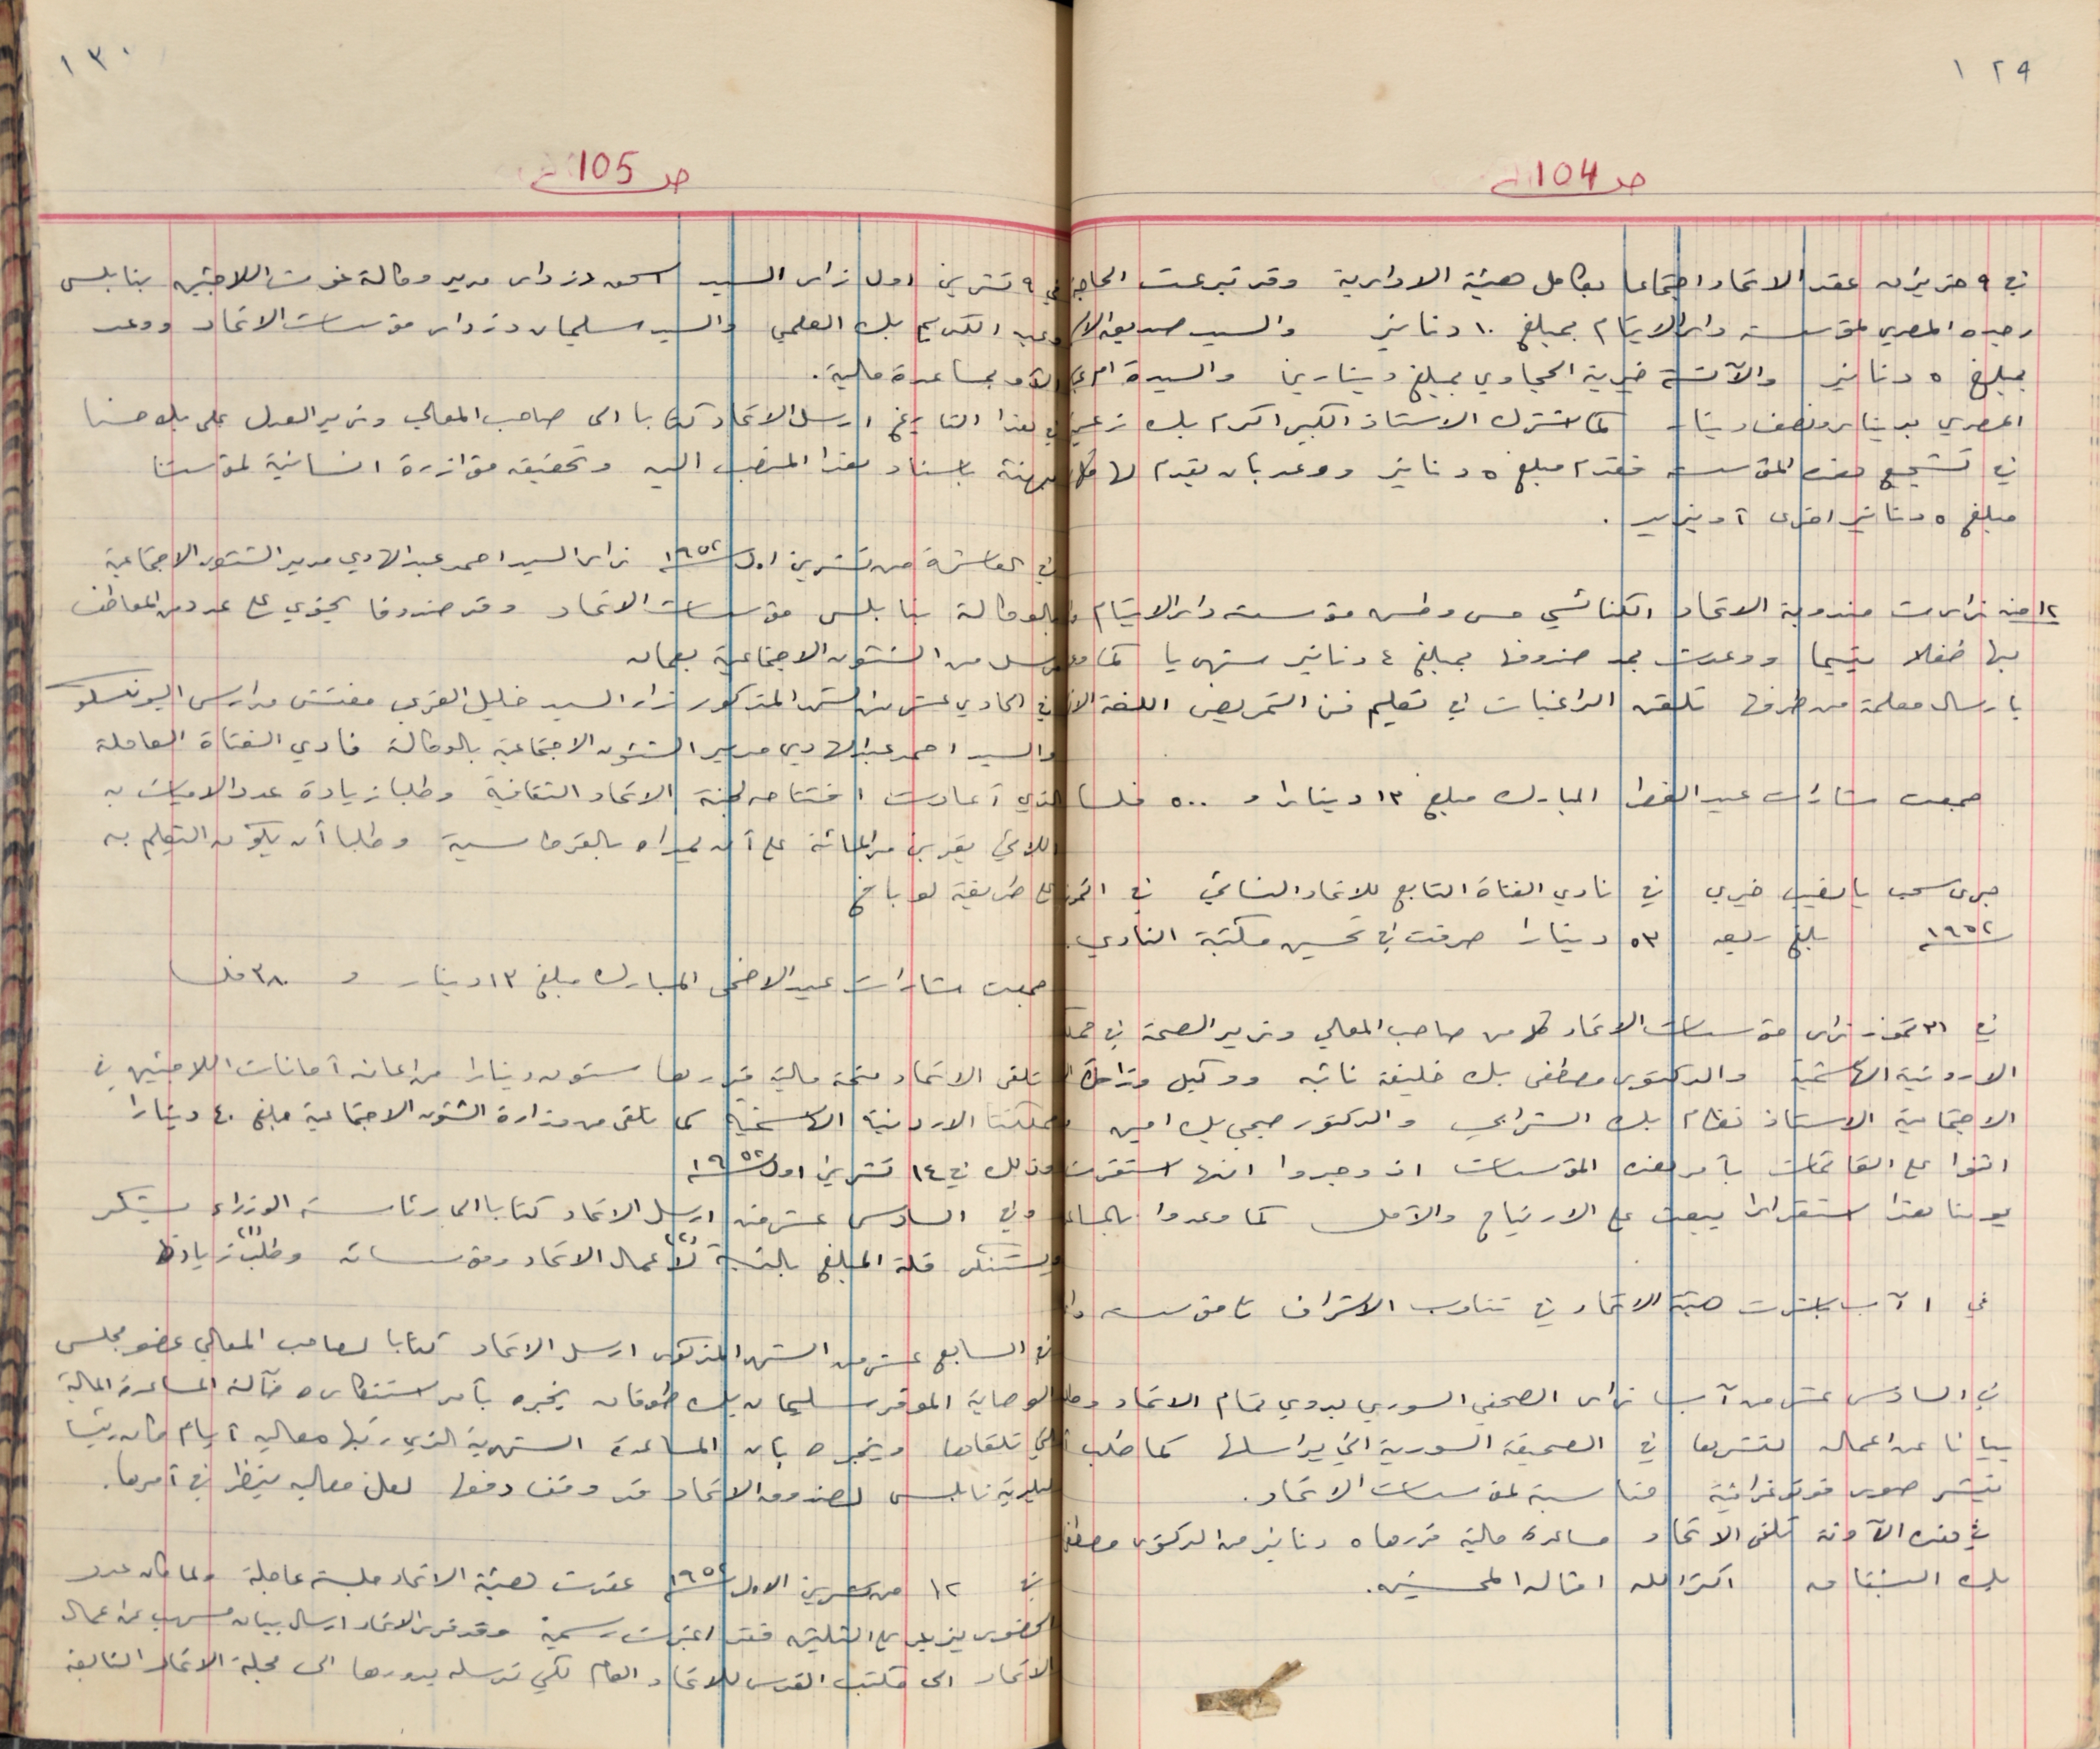 ١٢٩
صـ 104
في ٩ حزيران عقد الاتحاد اجتماعا بكامل هيئة الادارية وقد تبرعت الحاجة
المصري لمؤسسة دار الايتام بمبلغ ١٠ دنانير والسيد
بمبلغ ٥ دنانير والآنسة خيرية الحجاوي بمبلغ دينارين والسيدة
المصري بدينار ونصف دينار كما اشترك الاستاذ الكبير اكرم بك زعيتر
في تشجيع هذه المؤسسة فقدم مبلغ ٥ دنانير ووعد بان يقدم لها
مبلغ ٥ دنانير اخرى أو يزيد .
١٢ منه زارت مندوبة الاتحاد الكنائسي مس مؤسسة دار الايتام
بها طفلا يتيما ووعدت بمد صندوقها بمبلغ ٤ دنانير شهريا كما
بارسال معلمة من طرفها تلقن الراغبات في تعليم فن التمريض اللغة
جمعت شارات عيد الفطر المبارك مبلغ ١٣ دينارا و ٥٠٠ فلسا
جرى سحب يانصيب خيري في نادي الفتاة التابع للاتحاد النسائي في
١٩٥٢ بلغ ريعه ٥٣ دينارا صرفت في تحسين مكتبة النادي.
في ٣١ تموز زار مؤسسات الاتحاد كل من صاحب المعالي وزير الصحة في
الاردنية الهاشمية والدكتور مصطفى بك خليفة نائبه ووكيل وزارة
الاجتماعية الاستاذ نظام بك الشرابي والدكتور صبحي بك امين
اثنوا على القائمات بأمر هذه المؤسسات اذ وجدوا انها استقرت
يومنا هذا استقرارا يبعث على الارتياح والأمل كما وعدوا
في ١ آب باشرت هيئة الاتحاد في تناوب الاشراف على مؤسسة
في السادس عشر من آب زار الصحفي السوري بدوي تمام الاتحاد
بيانا عن اعماله لنشرها في الصحيفة السورية التي يراسلها كما طلب
بنشر صور فوتوغرافية مناسبة لمؤسسات الاتحاد.
في هذه الآونة تلقى الاتحاد مساعدة مالية قدرها ٥ دنانير من الدكتور مصطفى
بك اكثر الله امثاله المحسنين.
١٣٠
صـ 105
في ٩ تشرين اول زار السيد اسحق دزدار مدير وكالة غوث اللاجئين بنابلس
وعبد الكريم بك العلمي والسيد سليمان دزدار مؤسسات الاتحاد ووعد
بمساعدة مالية.
في هذا التاريخ ارسل الاتحاد كتابا الى صاحب المعالي وزير العدل علي بك حسنا
مهنئة باسناد هذا المنصب اليه وتحقيقه مؤازرة انسانية لمؤسستنا
في العاشرة من تشرين اول ١٩٥٢ زار السيد احمد عبد الهادي مدير الشئون الاجتماعية
بالوكالة بنابلس مؤسسات الاتحاد وقد صندوقا يحتوي على عدد من المعاطف
مرسل من الشئون الاجتماعية بعمان
في الحادي عشر من الشهر المذكور زار السيد خليل مفتش مدارس اليونسكو
والسيد احمد عبد الهادي مدير الشئون الاجتماعية بالوكالة نادي الفتاة العاملة
الذي أعادت افتتاحه لجنة الاتحاد الثقافية وطلبا زيادة عدد الاميات به
اللائي يقربن من المائة على أن يمداه بالقرطاسية وطلبا أن يكون التعليم به
على طريقة لوباخ
جمعت شارات عيد الاضحى المبارك مبلغ ١٣ دينار و ٣٨٠ فلسا
تلقى الاتحاد منحة مالية قدرها ستون دينارا من اعانة أمانات اللاجئين في
مملكتنا الاردنية الهاشمية كما تلقى من وزارة الشئون الاجتماعية مبلغ ٤٠ دينارا
وذلك في ١٤ تشرين اول ١٩٥٢
وفي السادس عشر منه ارسل الاتحاد كتابا الى رئاسة الوزراء يشكر
ويستنكر قلة المبلغ بالنسبة لأعمال الاتحاد ومؤسساته وطلب زيادته
في السابع عشر من الشهر المذكور ارسل الاتحاد كتابا لصاحب المعالي عضو مجلس
الوصاية الموقر سليمان بك طوقان يخبره بأمر استنكاره ضآلة المساعدة المالية
التي تلقاها ويخبره بأن المساعدة الشهرية الذي رتبها معاليه أيام كان رئيسا
لبلدية نابلس لصندوق الاتحاد قد وقف دفعها لعل معاليه ينظر في أمرها.
في ١٢ من تشرين الاول ١٩٥٢ عقدت هيئة الاتحاد جلسة عاجلة ولما كان عدد
الحضور يزيد على الثلثين فقد اعتبرت رسمية وقد قرر الاتحاد ارسال بيان مسهب عن اعمال
الاتحاد الى مكتب القدس للاتحاد العام لكي ترسله بدورها الى مجلة الاتحاد التابعة